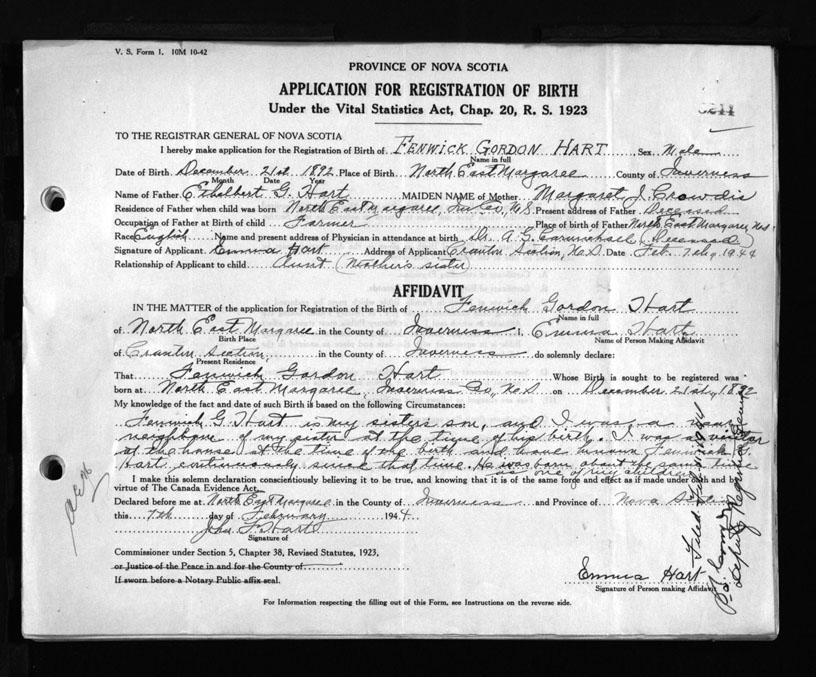 V. S. Form 1. 10M 10-42
PROVINCE OF NOVA SCOTIA
APPLICATION FOR REGISTRATION OF BIRTH
Under the Vital Statistics Act, Chap. 20, R. S. 1923
TO THE REGISTRAR GENERAL OF NOVA SCOTIA
I hereby make application for the Registration of Birth of FENWICK GORDON HART Sex Male
Name in full
Date of Birth December 21st 1892 Place of Birth North East Margaree County of Inverness
Month Date Year
Name of Father Ethelbert G. Hart MAIDEN NAME of Mother Margaret J. Crowdis
Residence of Father when child was born North East Margaree, Inv. Co., N.S. Present address of Father Deceased
Occupation of Father at Birth of child Farmer Place of birth of Father North East Margaree, N.S.
Race English Name and present address of Physician in attendance at birth Dr. A. G. Carmichael (Deceased)
Signature of Applicant Emma Hart Address of Applicant Cranton Section, N.S. Date Feb. 7th, 1944
Relationship of Applicant to child Aunt (Mother's sister)
AFFIDAVIT
IN THE MATTER of the application for Registration of the Birth of Fenwick Gordon Hart
Name in full
of North East Margaree in the County of Inverness I, Emma Hart
Birth Place Name of Person Making Affidavit
of Cranton Section, in the County of Inverness do solemnly declare:
Present Residence
That Fenwick Gordon Hart Whose Birth is sought to be registered was
born at North East Margaree, Inverness Co., N.S. on December 21st, 1892
My knowledge of the fact and date of such Birth is based on the following Circumstances:
Fenwick G. Hart is my sister's son, and I was a near
neighbour of my sister at the time of his birth. I was a visitor
at the house at the time of the birth and have known Fenwick G.
Hart continuously since that time. He was born about the same time
as one of my
I make this solemn declaration conscientiously believing it to be true, and knowing that it is of the same force and effect as if made under oath and by
virtue of The Canada Evidence Act.
Declared before me at North East Margaree in the County of Inverness and Province of Nova Scotia
this 7th day of February 1944
John F. Hart
Signature of
Commissioner under Section 5, Chapter 38, Revised Statutes, 1923,
or Justice of the Peace in and for the County of
If sworn before a Notary Public affix seal.
Emma Hart
Signature of Person making Affidavit
For Information respecting the filling out of this Form, see Instructions on the reverse side.
Filed
Deputy Registrar General